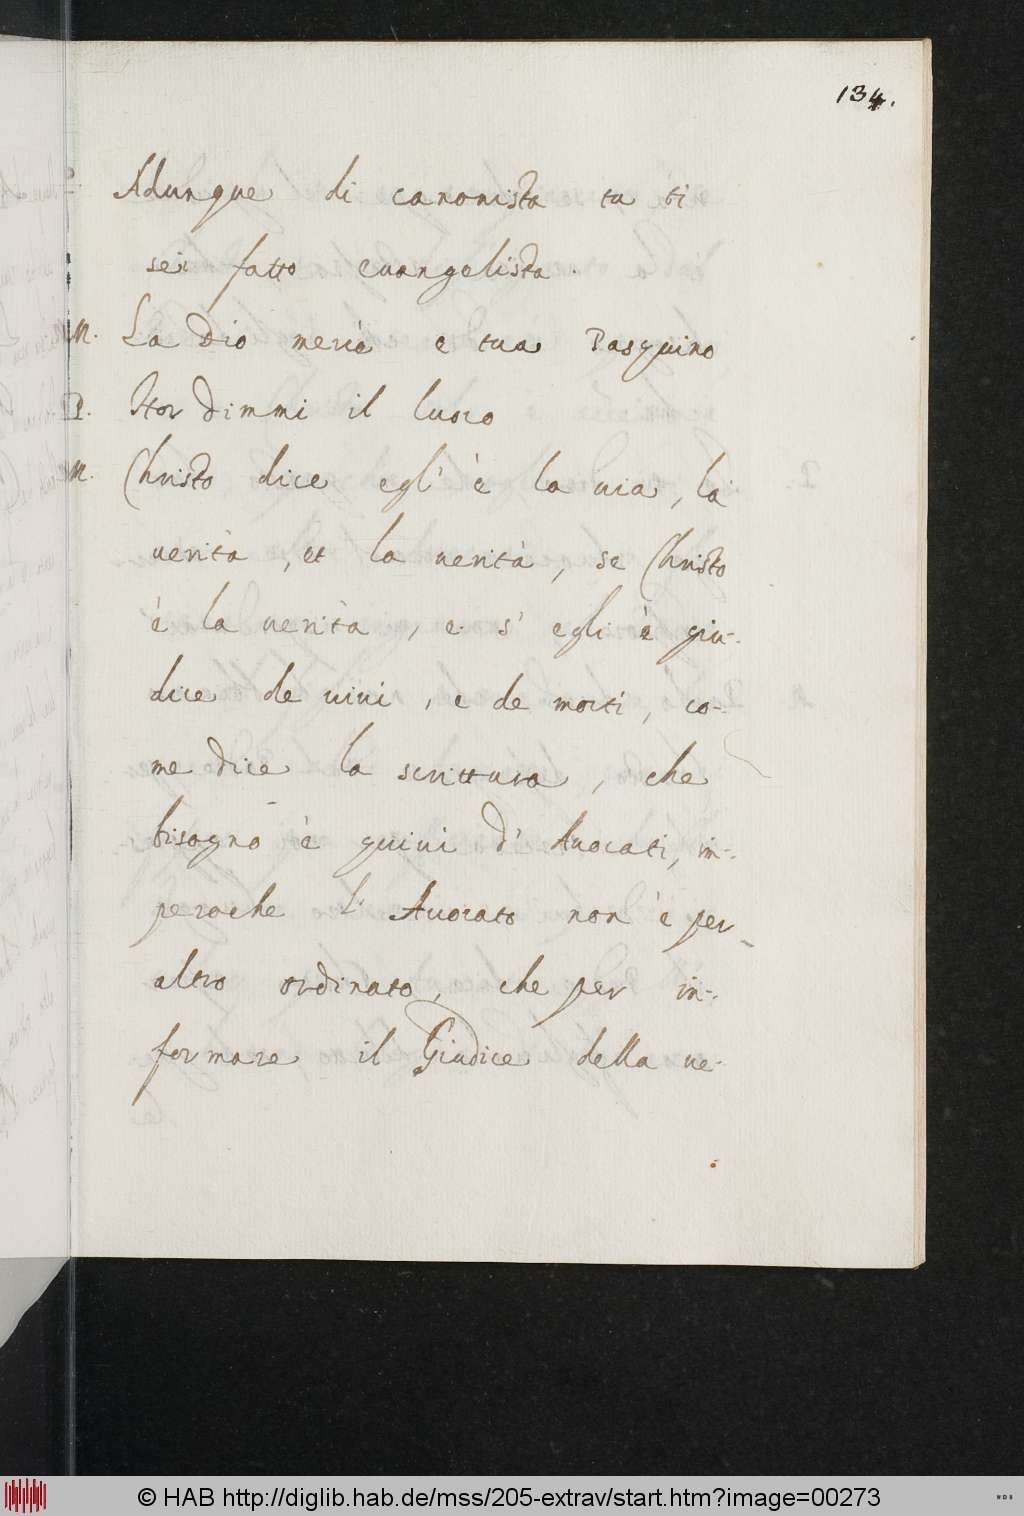 134.
P. Adunque di canonista tu ti
sei fatto euangelista.
M. La Dio mercè e tua Pasquino
P. Hor dimmi il luoco
M. Christo dice egl' è la uia, la
uerità, et la uerità, se Christo
è la uerità, e s' egli è giu-
dice de uiui, e de morti, co-
me dice la scrittura, che
bisogno è quiui d' Auocati, in-
peroche l' Auocato non è per
altro ordinato, che per in-
formare il Giudice della ue-
© HAB http://diglib.hab.de/mss/205-extrav/start.htm?image=00273